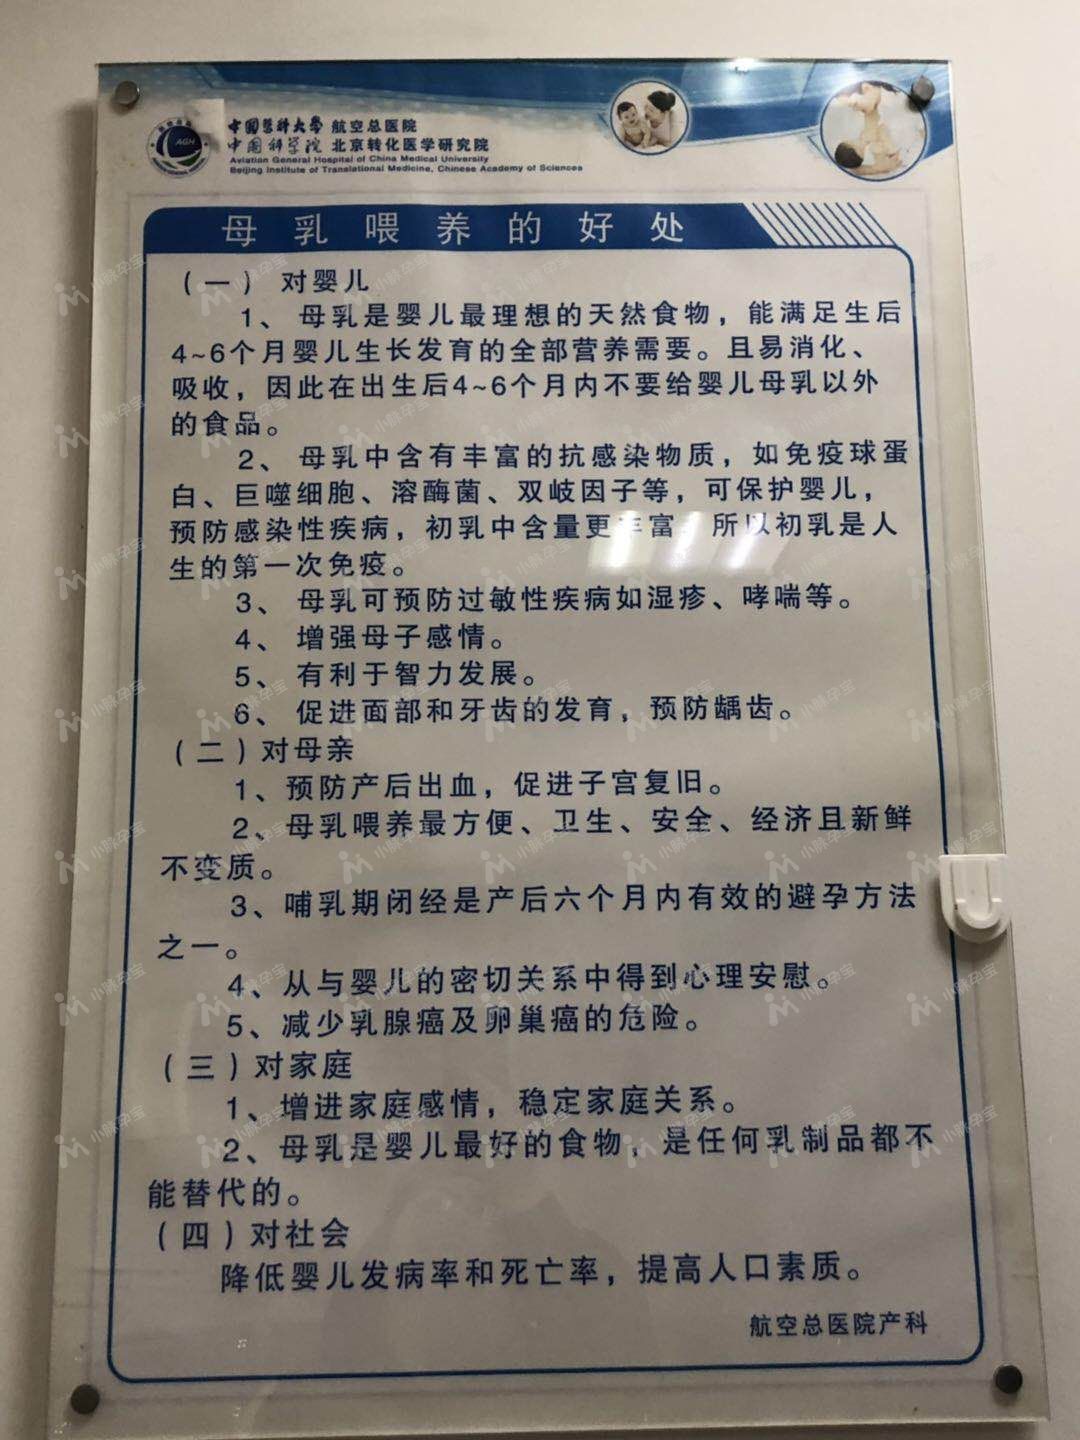 中国医科大学 航空总医院
中国科学院 北京转化医学研究院
Aviation General Hospital of China Medical University
Beijing Institute of Translational Medicine, Chinese Academy of Sciences
AGH
母乳喂养的好处
（一） 对婴儿
1、 母乳是婴儿最理想的天然食物，能满足生后
4~6个月婴儿生长发育的全部营养需要。且易消化、
吸收，因此在出生后4~6个月内不要给婴儿母乳以外
的食品。
2、 母乳中含有丰富的抗感染物质，如免疫球蛋
白、巨噬细胞、溶酶菌、双岐因子等，可保护婴儿，
预防感染性疾病，初乳中含量更丰富 所以初乳是人
生的第一次免疫。
3、 母乳可预防过敏性疾病如湿疹、哮喘等。
4、 增强母子感情。
5、 有利于智力发展。
6、 促进面部和牙齿的发育，预防龋齿。
（二）对母亲
1、预防产后出血，促进子宫复旧。
2、母乳喂养最方便、卫生、安全、经济且新鲜
不变质。
3、哺乳期闭经是产后六个月内有效的避孕方法
之一。
4、从与婴儿的密切关系中得到心理安慰。
5、减少乳腺癌及卵巢癌的危险。
（三）对家庭
1、增进家庭感情，稳定家庭关系。
2、母乳是婴儿最好的食物，是任何乳制品都不
能替代的。
（四）对社会
降低婴儿发病率和死亡率，提高人口素质。
航空总医院产科
小脉孕宝